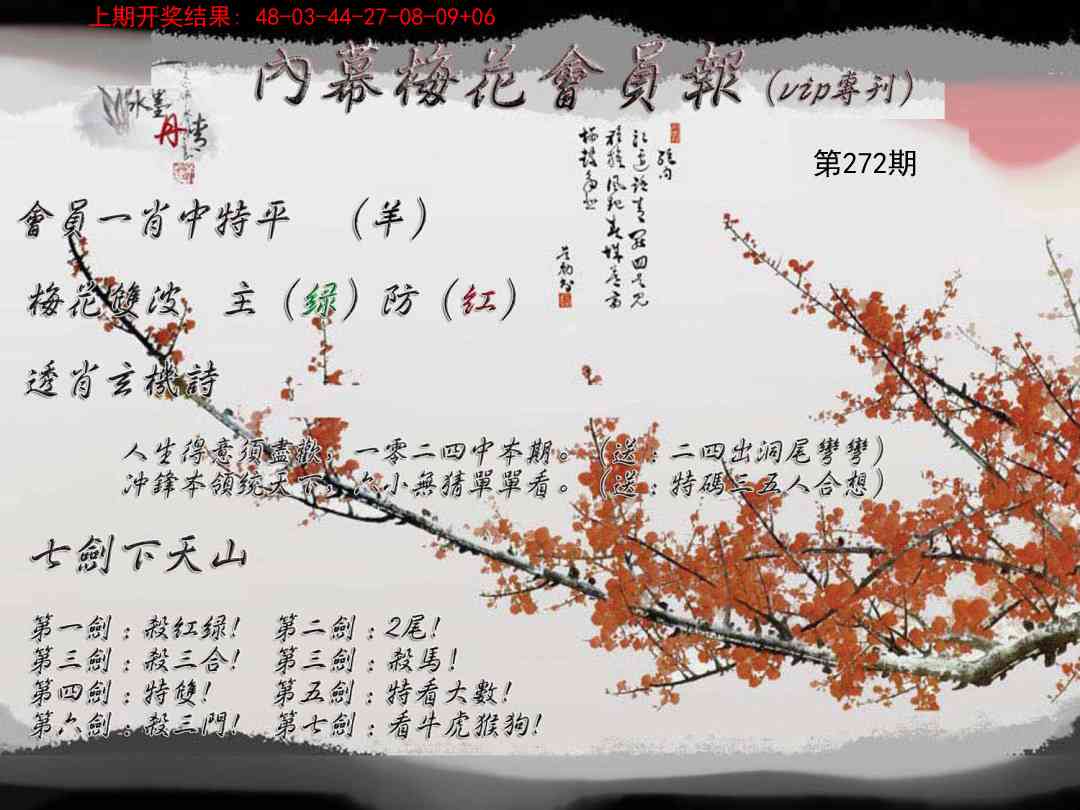 上期开奖结果: 48-03-44-27-08-09+06
內幕梅花會員報(vip專刊)
水墨
丹青
第272期
會員一肖中特平 (羊)
梅花雙波 主(绿)防(红)
透肖玄機詩
人生得意須盡歡，一零二四中本期。(送:二四出洞尾彎彎)
冲鋒本領统天下，六小無猜單單看。(送:特碼三五人合想)
七劍下天山
第一劍:殺红绿! 第二劍:2尾!
第三劍:殺三合! 第三劍:殺馬!
第四劍:特雙! 第五劍:特看大數!
第六劍:殺三門! 第七劍:看牛虎猴狗!